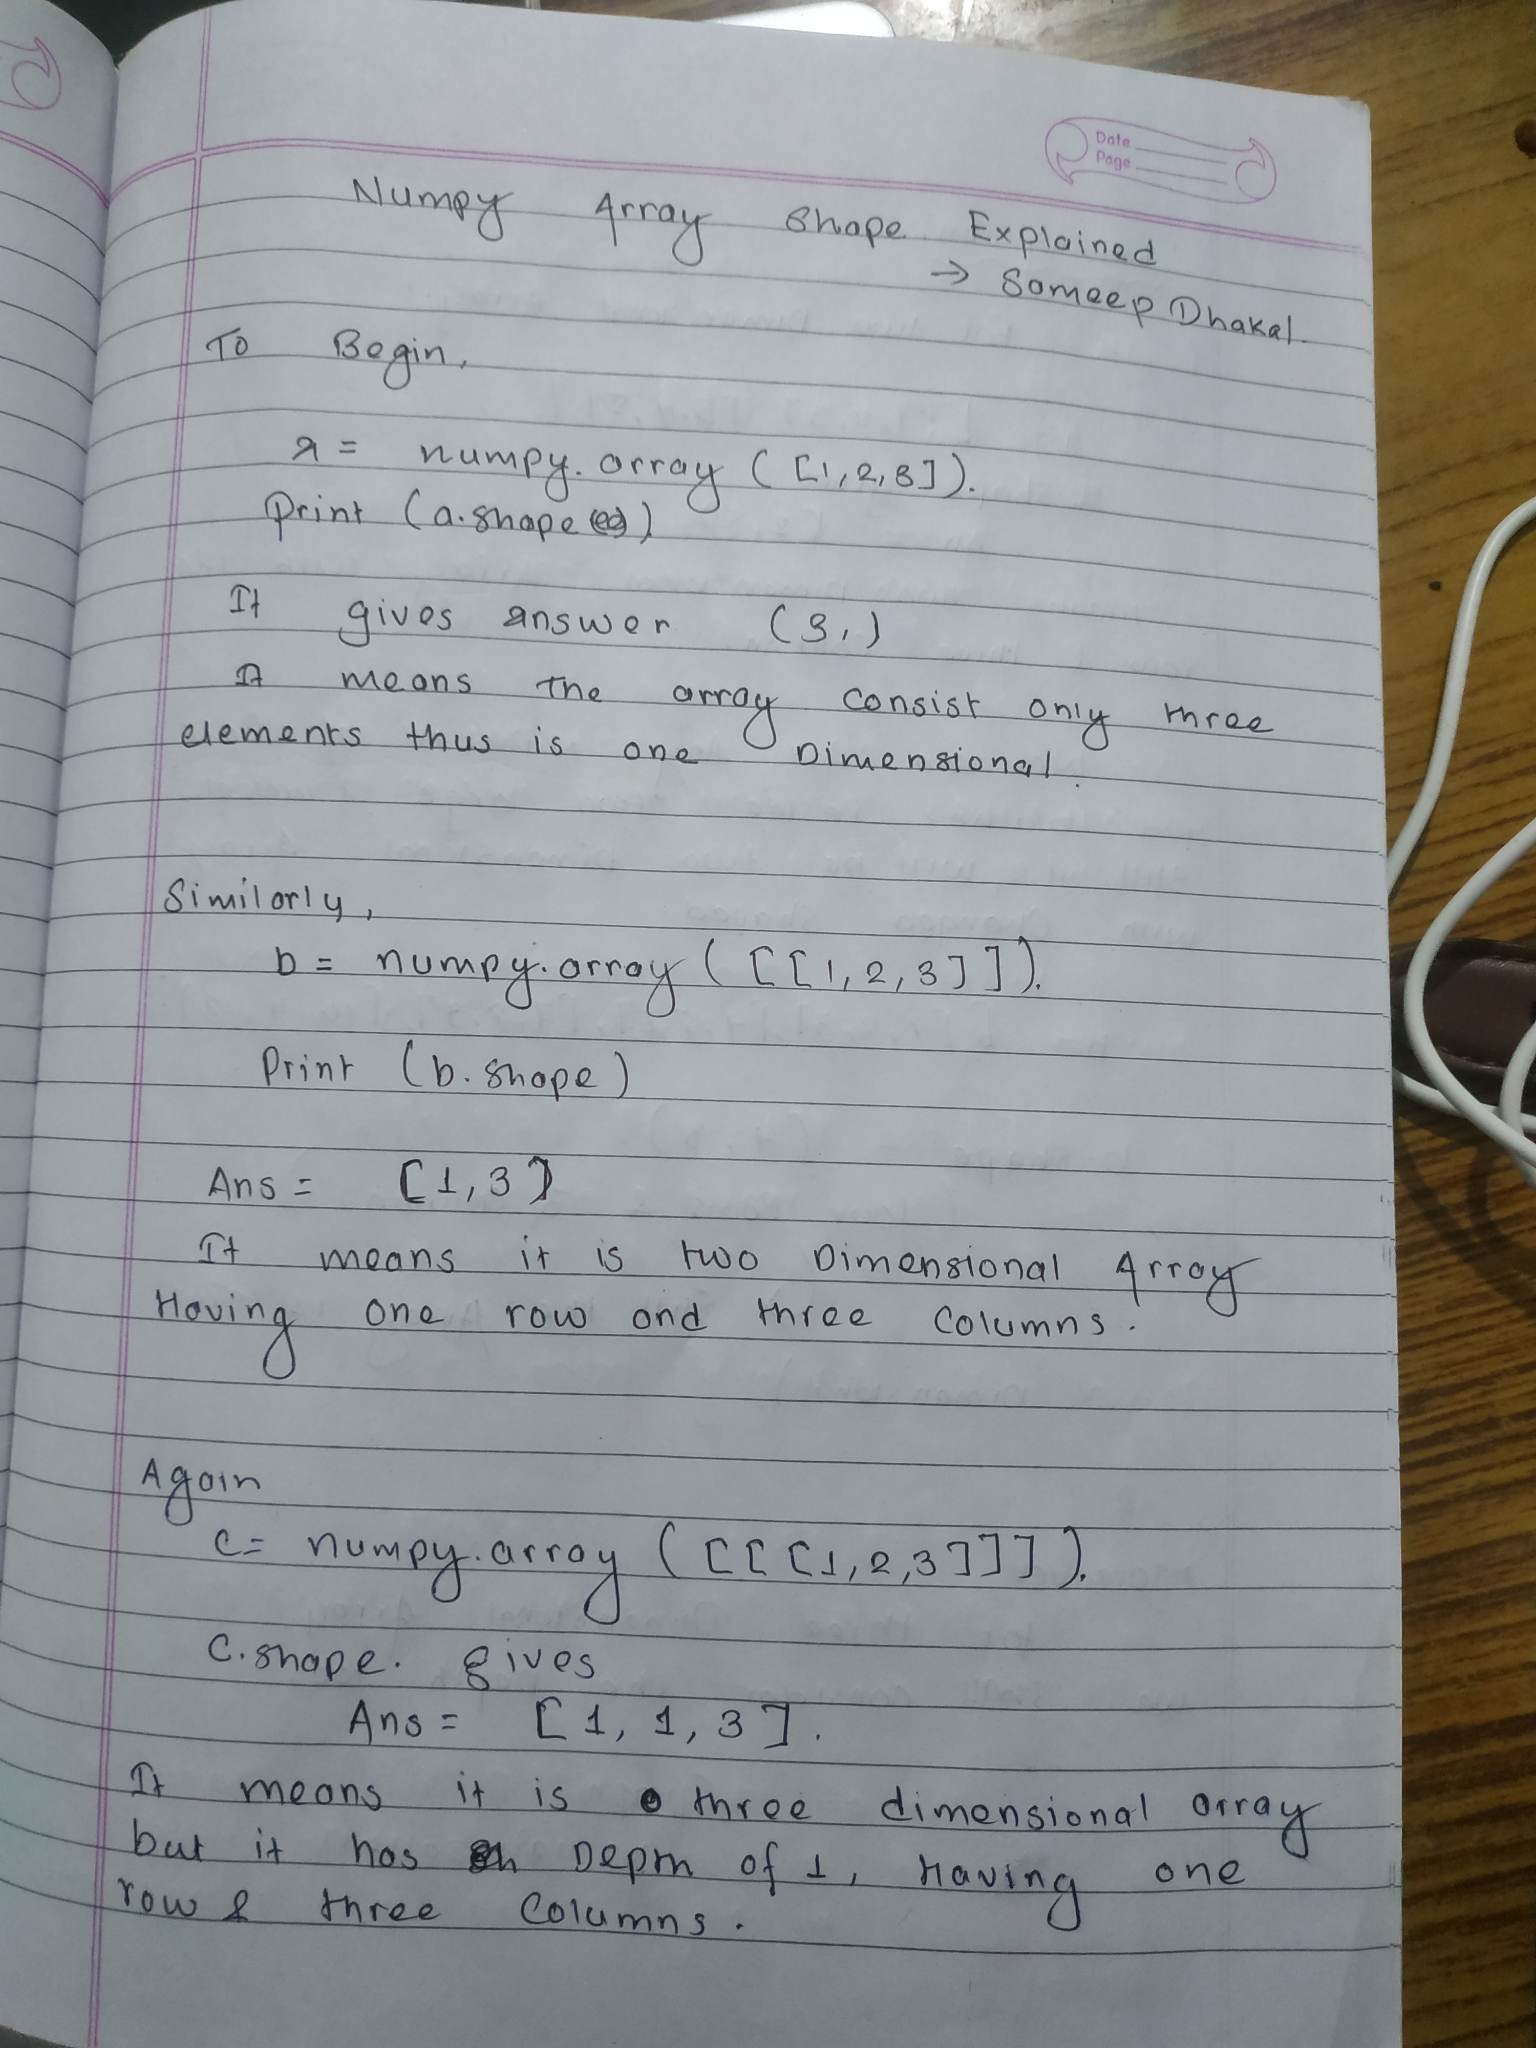 Date
Page
Numpy Array Shape Explained
→ Sameep Dhakal.
To Begin,
a = numpy.array ([1,2,3]).
Print (a.shape)
It gives answer (3,)
It means the array consist only three
elements thus is one Dimensional.
Similarly,
b = numpy.array ([[1,2,3]]).
Print (b.shape)
Ans = [1,3]
It means it is two Dimensional Array
Having one row and three columns.
Again
c = numpy.array ([[[1,2,3]]]).
C.shape. gives
Ans = [1, 1, 3].
It means it is three dimensional array
but it has Depth of 1, Having one
row & three columns.